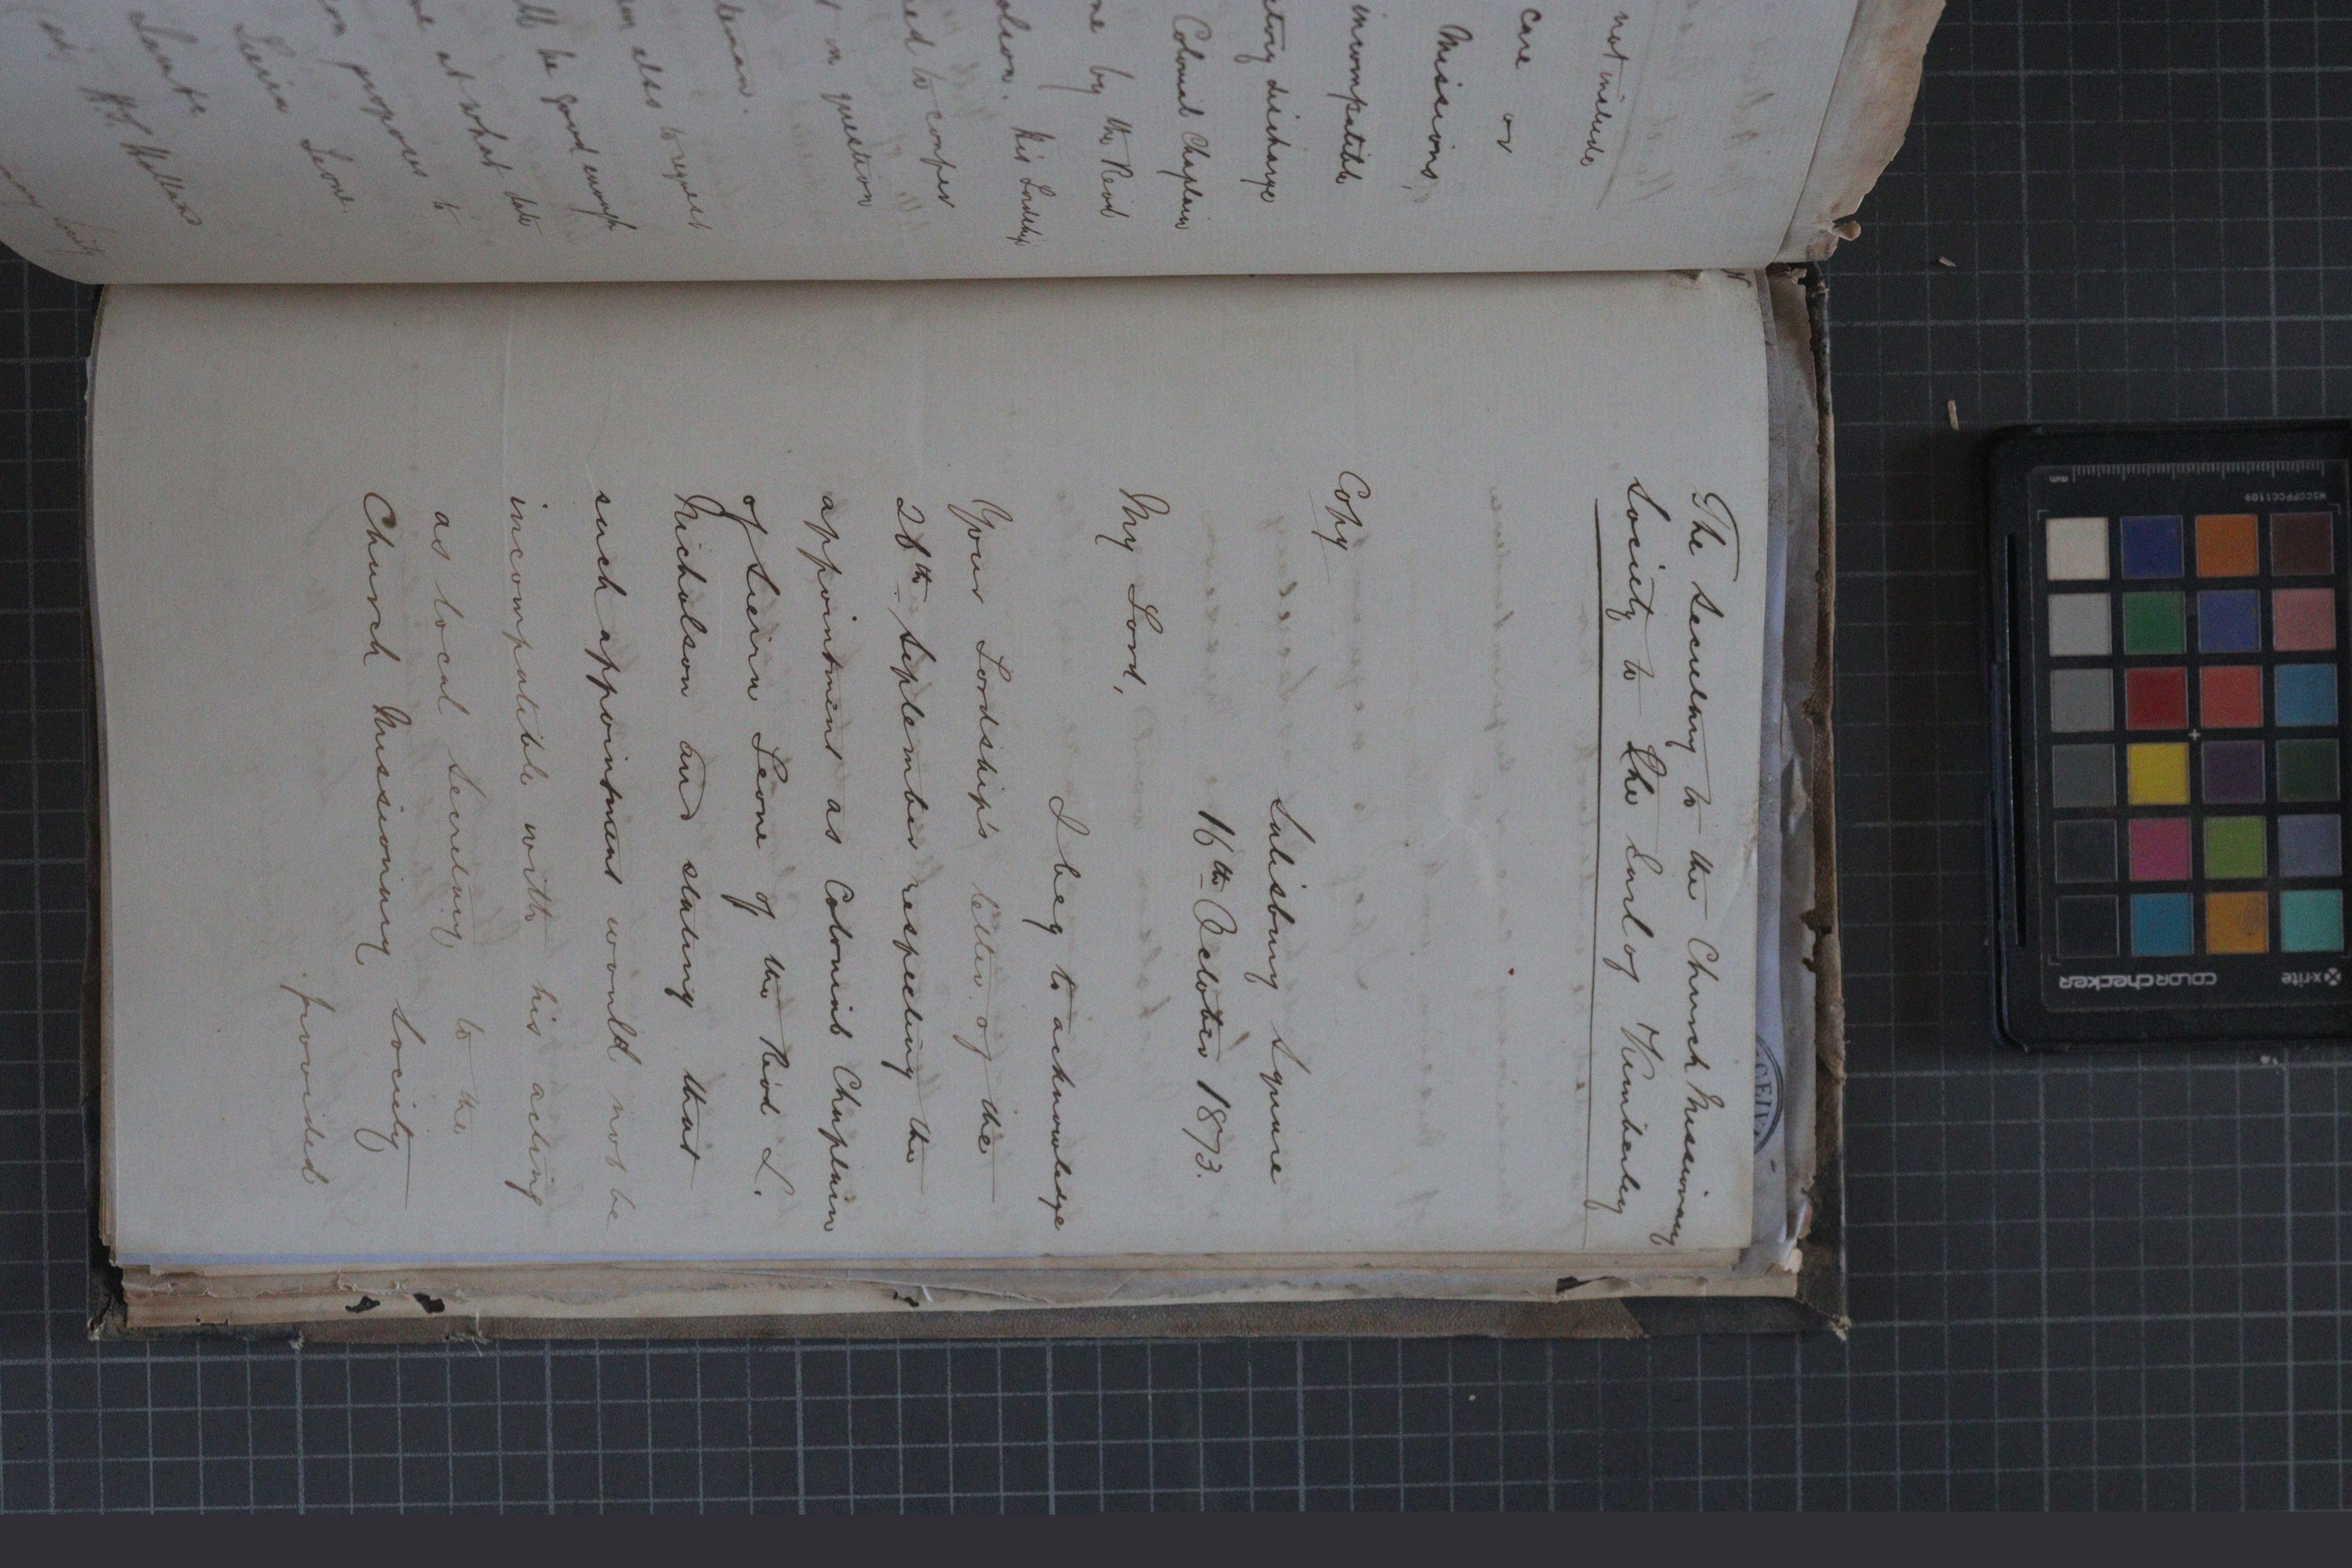 not include
care or
Missions,
incompatible
discharge
Colonial Chaplain
me by the Revd
His Lordship
to confer
in question
also to request
ll be good enough
at what date
proposes to
Sierra Leone.
The Secretary to the Church Missionary
Society to The Earl of Kimberley
Copy
Salisbury Square
16th October 1873.
My Lord,
I beg to acknowledge
Your Lordship's letter of the
26th September respecting the
appointment as Colonial Chaplain
of Sierra Leone of the Revd L.
Nicholson and stating that
such appointment would not be
incompatible with his acting
as local Secretary to the
Church Missionary Society
provided
x-rite
COLORCHECKER
MSCCPPCC1109
mm
CEIV